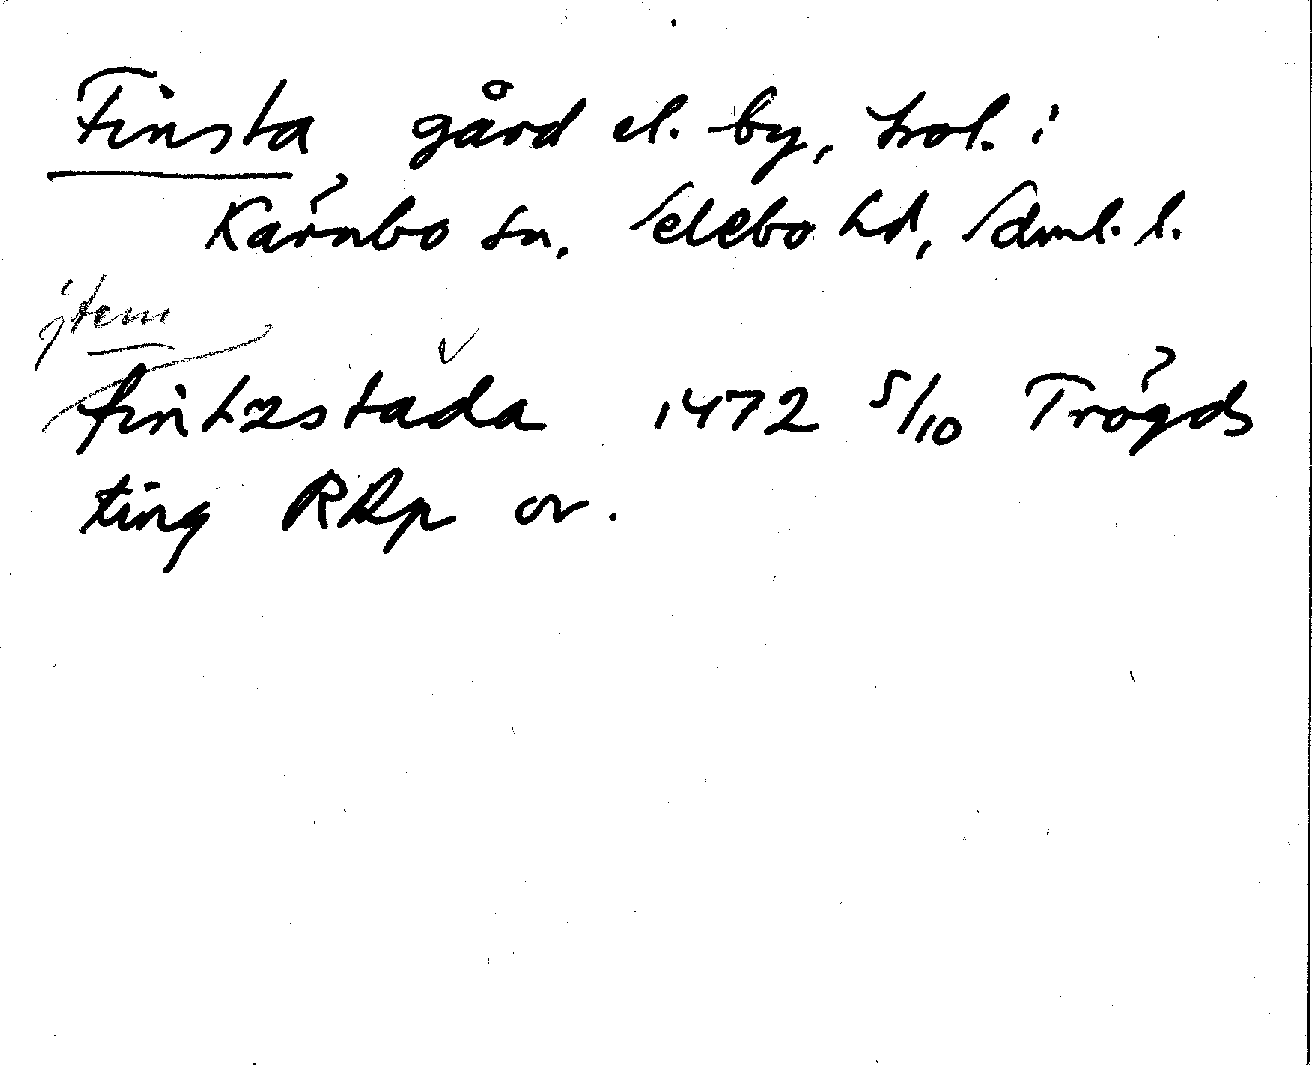 Finsta, gård el. by, trol. i
Kärnbo sn, Selebo hd, Sdml. l.
jtem
fintzstada 1472 5/10 Trögds
ting RAp or.